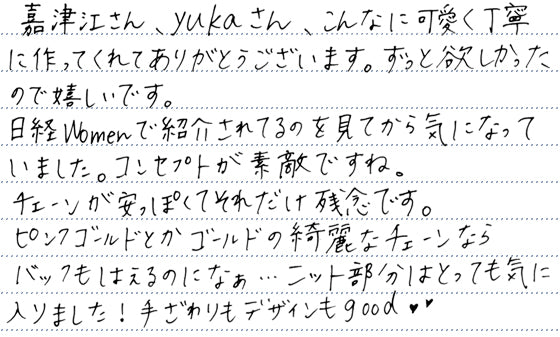 嘉津江さん、yukaさん、こんなに可愛く丁寧
に作ってくれてありがとうございます。ずっと欲しかった
ので嬉しいです。
日経Womenで紹介されてるのを見てから気になって
いました。コンセプトが素敵ですね。
チェーンが安っぽくてそれだけ残念です。
ピンクゴールドとかゴールドの綺麗なチェーンなら
バックもはえるのになぁ…ニット部分はとっても気に
入りました！手ざわりもデザインもgood♥♥